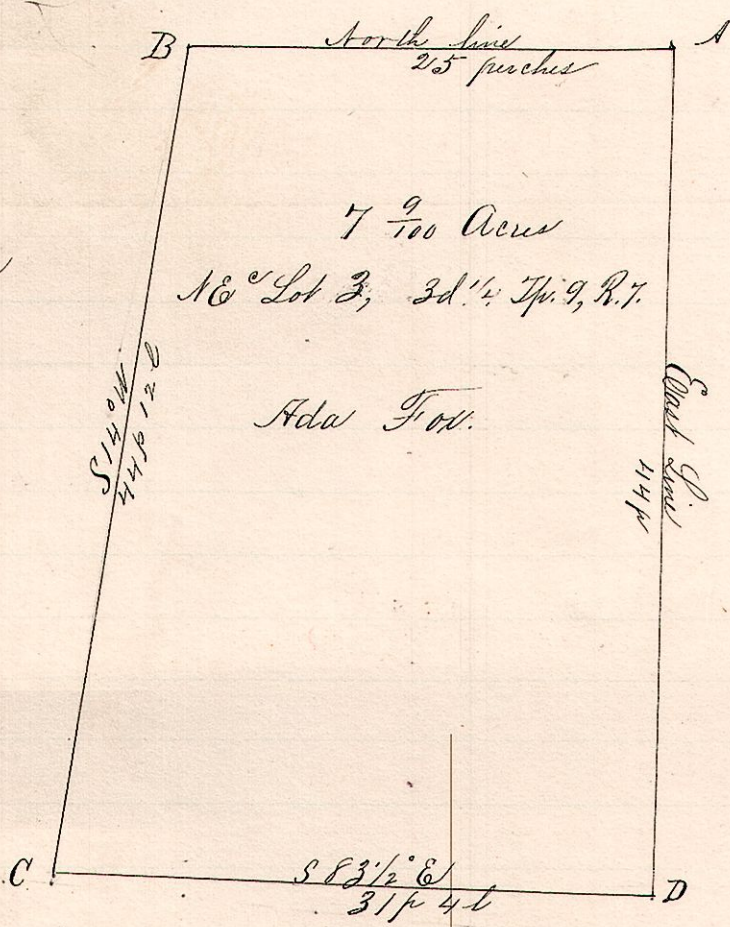 B
North line
A
25 perches
7 9/100 Acres
NEc Lot 3, 3d 1/4 Tp. 9, R. 7.
Ada Fox.
S 14° W
44p 12 l
East Line
44p
C
S 83 1/2° E
31p 4 l
D